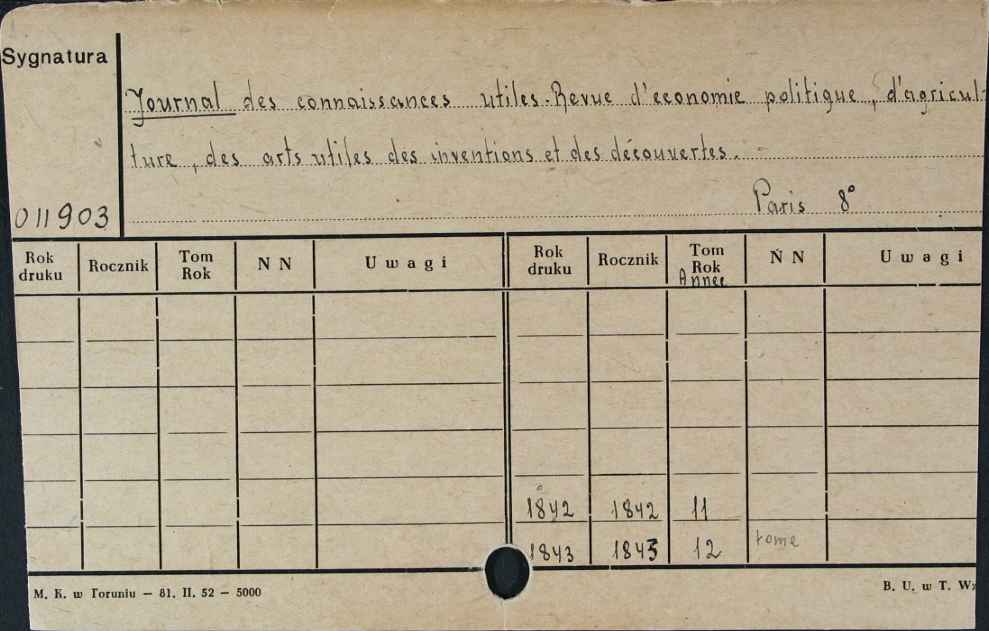 Sygnatura
Journal des connaissances utiles. Revue d'economie politique, d'agricul-
ture, des arts utiles des inventions et des découvertes.
Paris 8°
011903
Rok druku Rocznik Tom Rok N N Uwagi Rok druku Rocznik Tom Rok Annee N N Uwagi
1842 1842 11
1843 1843 12 tome
M. K. w Toruniu — 81. II. 52 — 5000 B. U. w T.